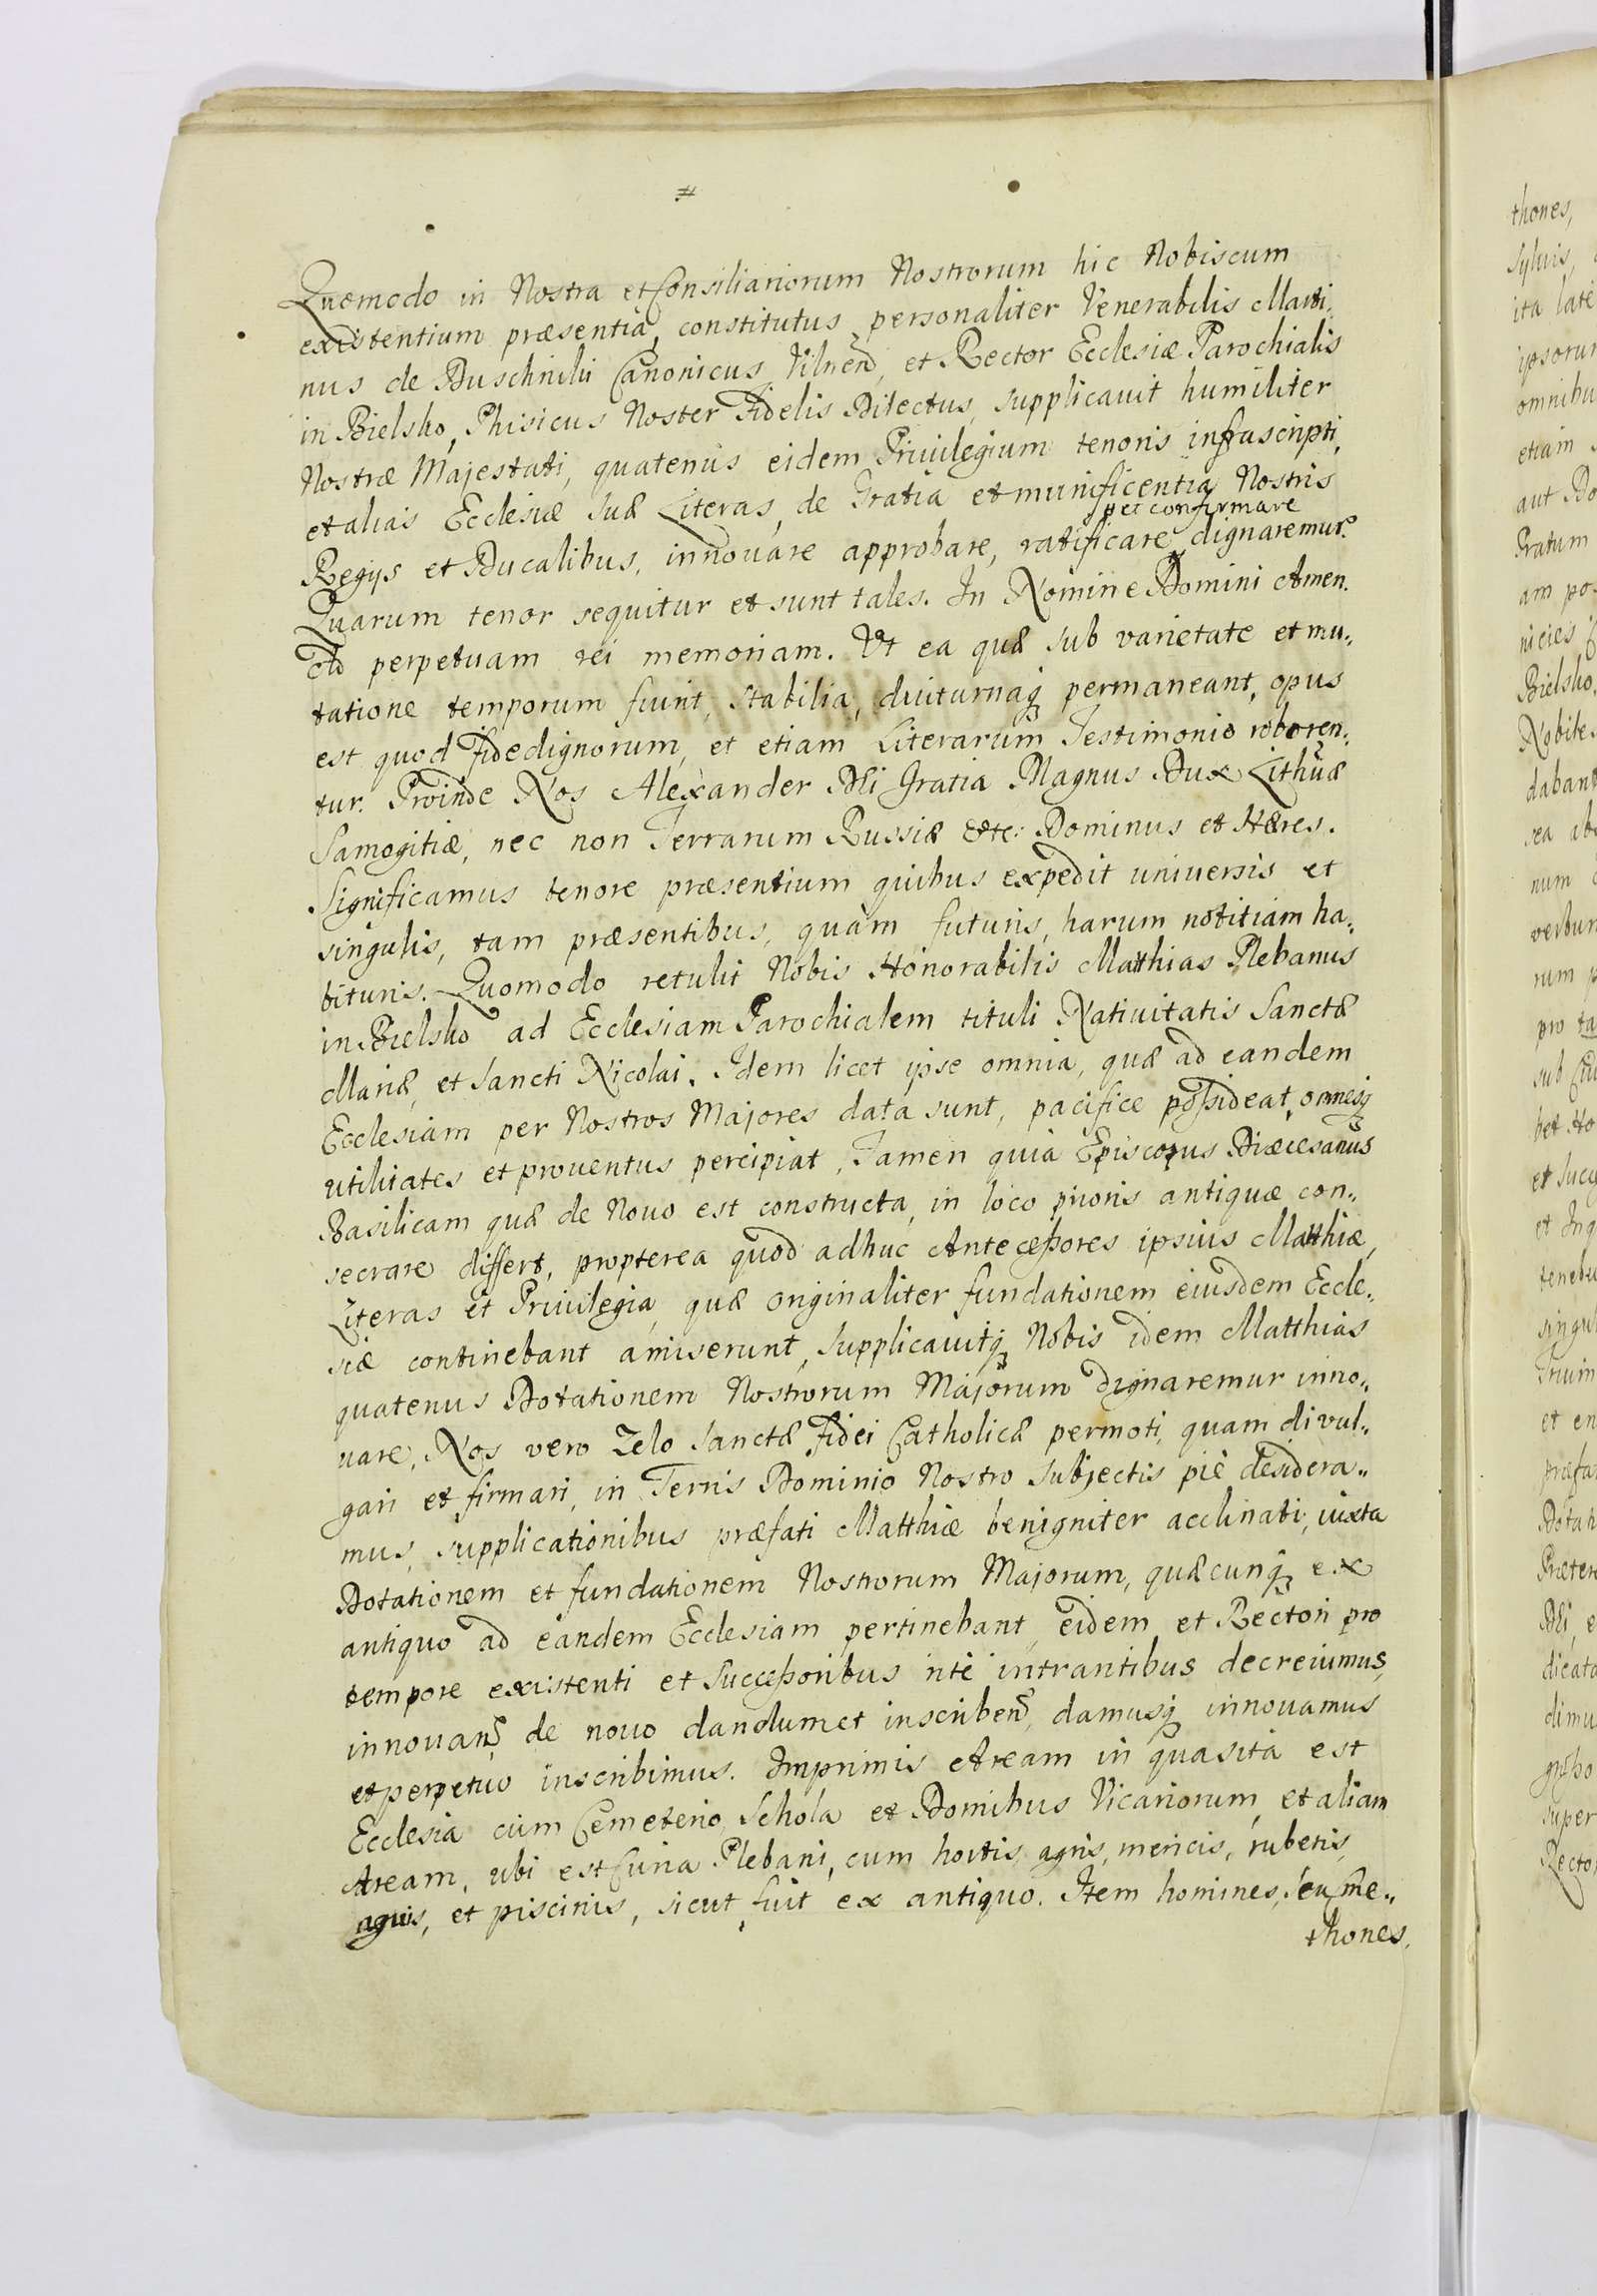 Quæmodo in Nostra et Consiliariorum Nostrorum hic Nobiscum
existentium præsentia, constitutus personaliter Venerabilis Marti„
nus de Duschniki Canonicus Vilnen, et Rector Ecclesiæ Parochialis
in Bielsko, Phisicus Noster Fidelis Dilectus, supplicavit humiliter
Nostræ Majestati, quatenus eidem Priuilegium tenoris infrascripti,
et alias Ecclesiæ suæ Literas, de Gratia et munificentia Nostris
et confirmare
Regijs et Ducalibus, innouare approbare, ratificare dignaremur.
Quarum tenor sequitur et sunt tales. In Nomine Domini Amen.
Ad perpetuam rei memoriam. Vt ea quæ sub varietate et mu„
tatione temporum fiunt, stabilia, diuturnaq permaneant, opus
est quod fidedignorum, et etiam Literarum Testimonio roboren„
tur. Proinde Nos Alexander Dei Gratia Magnus Dux Lithuæ
Samogitiæ, nec non Terrarum Russiæ etc: Dominus et Hæres.
Significamus tenore præsentium quibus expedit universis et
singulis, tam præsentibus, quàm futuris, harum notitiam ha„
bituris. Quomodo retulit Nobis Honorabilis Matthias Plebanus
in Bielsko ad Ecclesiam Parochialem tituli Natiuitatis Sanctæ
Mariæ, et Sancti Nicolai. Idem licet ipse omnia, quæ ad eandem
Ecclesiam per Nostros Majores data sunt, pacifice possideat, omnesq
utilitates et prouentus percipiat, Tamen quia Episcopus Diæcesanus
Basilicam quæ de Nouo est constructa, in loco prioris antiquæ con„
secrare differt, propterea quod adhuc Antecessores ipsius Matthiæ,
Literas et Priuilegia, quæ originaliter fundationem eiusdem Eccle„
siæ continebant amiserunt, supplicauitq Nobis idem Matthias
quatenus Dotationem Nostrorum Majorum dignaremur inno„
uare, Nos vero Zelo Sanctæ Fidei Catholicæ permoti, quam divul„
gari et firmari, in Terris Dominio Nostro Subjectis piè desidera„
mus, supplicationibus præfati Matthiæ benigniter acclinati, iuxta
Dotationem et fundationem Nostrorum Majorum, quæcunq ex
antiquo ad eandem Ecclesiam pertinebant, eidem et Rectori pro
tempore existenti et Successoribus ritè intrantibus decreuimus,
innouan de nouo dandum et inscriben, damusq innouamus
et perpetuo inscribimus. Imprimis Aream in qua sita est
Ecclesia cum Cemeterio Schola et Domibus Vicariorum, et aliam
Aream, ubi est Curia Plebani, cum hortis, agris, mericis, rubetis,
aquis, et piscinis, sicut fuit ex antiquo. Item homines, seu me„
thones,
thones,
Syluis,
ita late
omnibu
etiam
aut Do
Pratum
am po
nicies
Bielsko,
Nobiles
dabant
num
rum p
pro ta
tenebu
singul
et en
præfa
Dotati
Præter
Dei, e
dicata
dimu
super
Rector